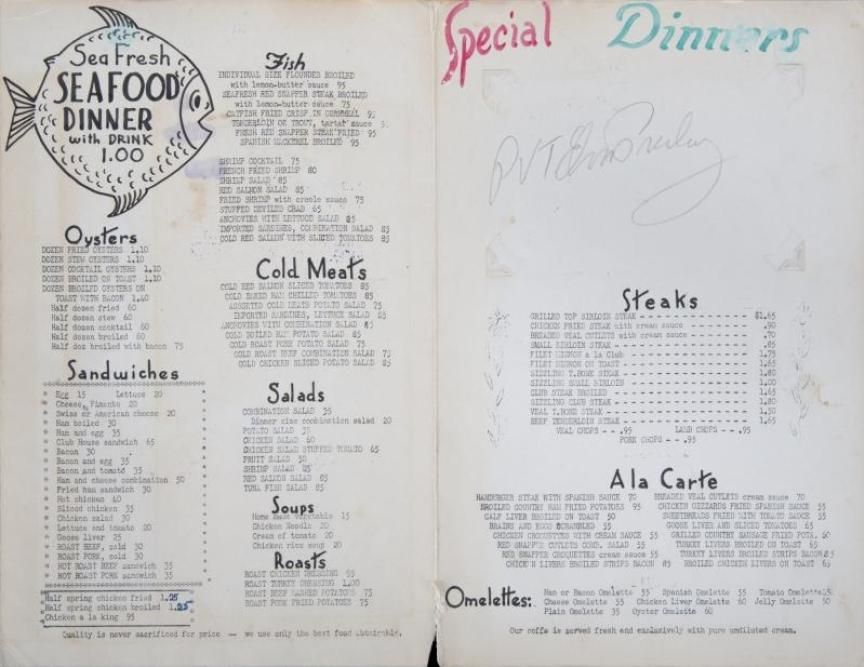 Sea Fresh
SEAFOOD
DINNER
with DRINK
1.00
Oysters
DOZEN FRIED OYSTERS 1.10
DOZEN STEW OYSTERS 1.10
DOZEN COCKTAIL OYSTERS 1.10
DOZEN BROILED ON TOAST 1.10
DOZEN BROILED OYSTERS ON
TOAST WITH BACON 1.40
Half dozen fried 60
Half dozen stew 60
Half dozen cocktail 60
Half dozen broiled 60
Half doz broiled with bacon 75
Sandwiches
Egg 15 Lettuce 20
Cheese, Pimento 20
Swiss or American cheese 20
Ham boiled 30
Ham and egg 35
Club House sandwich 65
Bacon 30
Bacon and egg 35
Bacon and tomato 35
Ham and cheese combination 50
Fried ham sandwich 30
Hot chicken 40
Sliced chicken 35
Chicken salad 30
Lettuce and tomato 20
Goose liver 25
ROAST BEEF, cold 30
ROAST PORK, cold 30
HOT ROAST BEEF sandwich 35
HOT ROAST PORK sandwich 35
Half spring chicken fried 1.25
Half spring chicken broiled 1.25
Chicken a la king 95
Fish
INDIVIDUAL SIZE FLOUNDER BROILED
with lemon-butter sauce 95
SEAFRESH RED SNAPPER STEAK BROILED
with lemon-butter sauce 75
CATFISH FRIED CRISP IN CORNMEAL 95
TENDERLOIN OF TROUT, tartar sauce
FRESH RED SNAPPER STEAK FRIED 95
SPANISH MACKEREL BROILED 95
SHRIMP COCKTAIL 75
FRENCH FRIED SHRIMP 80
SHRIMP SALAD 85
RED SALMON SALAD 85
FRIED SHRIMP with creole sauce 75
STUFFED DEVILED CRAB 65
ANCHOVIES WITH LETTUCE SALAD 85
IMPORTED SARDINES, COMBINATION SALAD 85
COLD RED SALMON WITH SLICED TOMATOES 85
Cold Meats
COLD RED SALMON SLICED TOMATOES 85
COLD BAKED HAM CHILLED TOMATOES 85
ASSORTED COLD MEATS POTATO SALAD 75
IMPORTED SARDINES, LETTUCE SALAD 85
ANCHOVIES WITH COMBINATION SALAD 85
COLD BOILED HAM POTATO SALAD 85
COLD ROAST PORK POTATO SALAD 75
COLD ROAST BEEF COMBINATION SALAD 75
COLD CHICKEN SLICED POTATO SALAD 85
Salads
COMBINATION SALAD 35
Dinner size combination salad 20
POTATO SALAD 35
CHICKEN SALAD 60
CHICKEN SALAD STUFFED TOMATO 65
FRUIT SALAD 50
SHRIMP SALAD 85
RED SALMON SALAD 85
TUNA FISH SALAD 85
Soups
Home Made Vegetable 15
Chicken Noodle 20
Cream of tomato 20
Chicken rice soup 20
Roasts
ROAST CHICKEN DRESSING 95
ROAST TURKEY DRESSING 1.00
ROAST BEEF MASHED POTATOES 75
ROAST PORK FRIED POTATOES 75
Quality is never sacrificed for price — we use only the best food obtainable.
Special Dinners
PVT Elvis Presley
Steaks
GRILLED TOP SIRLOIN STEAK $1.65
CHICKEN FRIED STEAK with cream sauce .90
BREADED VEAL CUTLETS with cream sauce .70
SMALL SIRLOIN STEAK .85
FILET MIGNON a la Club 1.75
FILET MIGNON ON TOAST 1.65
SIZZLING T.BONE STEAK 1.80
SIZZLING SMALL SIRLOIN 1.00
CLUB STEAK BROILED 1.65
SIZZLING CLUB STEAK 1.80
VEAL T.BONE STEAK 1.50
BEEF TENDERLOIN STEAK 1.65
VEAL CHOPS - - .95 LAMB CHOPS - - .95
PORK CHOPS - - .95
A la Carte
HAMBURGER STEAK WITH SPANISH SAUCE 70 BREADED VEAL CUTLETS cream sauce 70
BROILED COUNTRY HAM FRIED POTATOES 95 CHICKEN GIZZARDS FRIED SPANISH SAUCE 55
CALF LIVER BROILED ON TOAST 50 SWEETBREADS FRIED WITH TOMATO SAUCE 55
BRAINS AND EGGS SCRAMBLED 55 GOOSE LIVER AND SLICED TOMATOES 65
CHICKEN CROQUETTES WITH CREAM SAUCE 55 GRILLED COUNTRY SAUSAGE FRIED POTA, 60
RED SNAPPER CUTLETS COMB. SALAD 55 TURKEY LIVERS BROILED ON TOAST 65
RED SNAPPER CROQUETTES cream sauce 55 TURKEY LIVERS BROILED STRIPS BACON 85
CHICKEN LIVERS BROILED STRIPS BACON 85 BROILED CHICKEN LIVERS ON TOAST 65
Omelettes: Ham or Bacon Omelette 55 Spanish Omelette 55 Tomato Omelette 50
Cheese Omelette 55 Chicken Liver Omelette 60 Jelly Omelette 50
Plain Omelette 35 Oyster Omelette 60
Our coffe is served fresh and exclusively with pure undiluted cream.